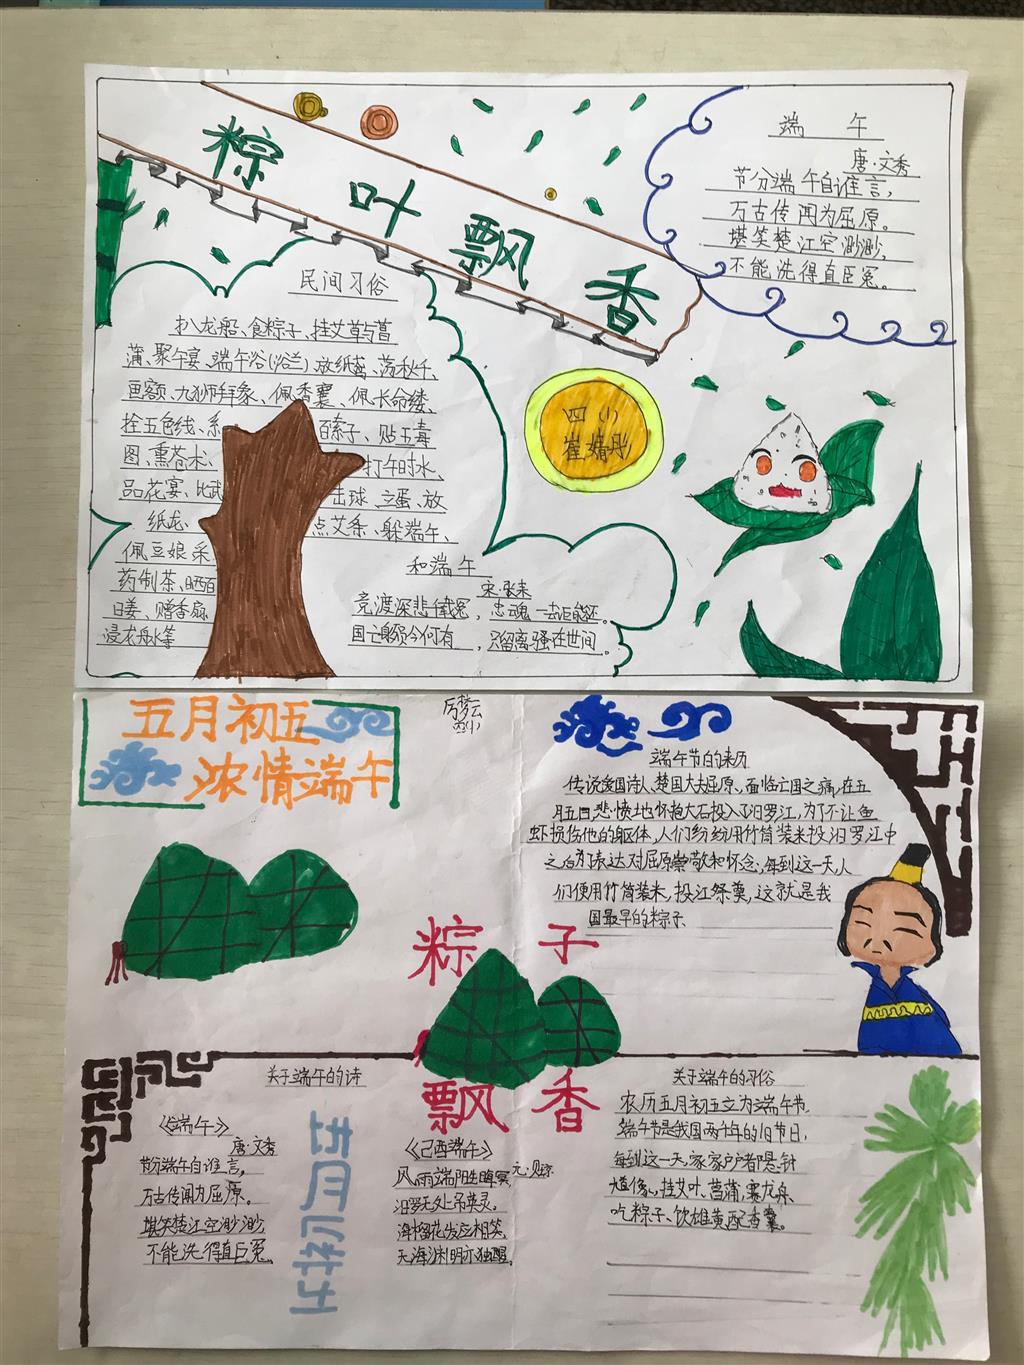 粽叶飘香
端 午
唐·文秀
节分端午自谁言，
万古传闻为屈原。
堪笑楚江空渺渺，
不能洗得直臣冤。
民间习俗
扒龙船、食粽子、挂艾草与菖
蒲、聚午宴、端午浴(浴兰)放纸鸢、荡秋千、
画额、九狮拜象、佩香囊、佩长命缕、
拴五色线、系百索子、贴五毒
图、熏苍术、打午时水、
品花宴、比武击球、立蛋、放
纸龙、点艾条、躲端午、
佩豆娘采
药制茶、晒百
日姜、赠香扇
浸龙舟水等
四小
崔婧彤
和端午
宋·张耒
竞渡深悲千载冤，忠魂一去讵能还。
国亡身殒今何有，只留离骚在世间。
五月初五
浓情端午
端午节的来历
传说爱国诗人、楚国大夫屈原、面临亡国之痛，在五
月五日悲愤地怀抱大石投入了汨罗江，为了不让鱼
虾损伤他的躯体，人们纷纷用竹筒装米投汨罗江中
之后为表达对屈原崇敬和怀念，每到这一天，人
们使用竹筒装米，投江祭奠，这就是我
国最早的粽子
粽子
飘香
关于端午的诗
《端午》
唐·文秀
节分端午自谁言，
万古传闻为屈原。
堪笑楚江空渺渺，
不能洗得直臣冤。
《己酉端午》
元·贝琼
风雨端阳生晦冥
汨罗无处吊英灵。
海榴花发应相笑
无酒渊明亦独醒。
关于端午的习俗
农历五月初五立为端午节，
端午节是我国两千年的旧节日，
每到这一天，家家户户都悬钟
馗像，挂艾叶、菖蒲，赛龙舟，
吃粽子、饮雄黄配香囊。